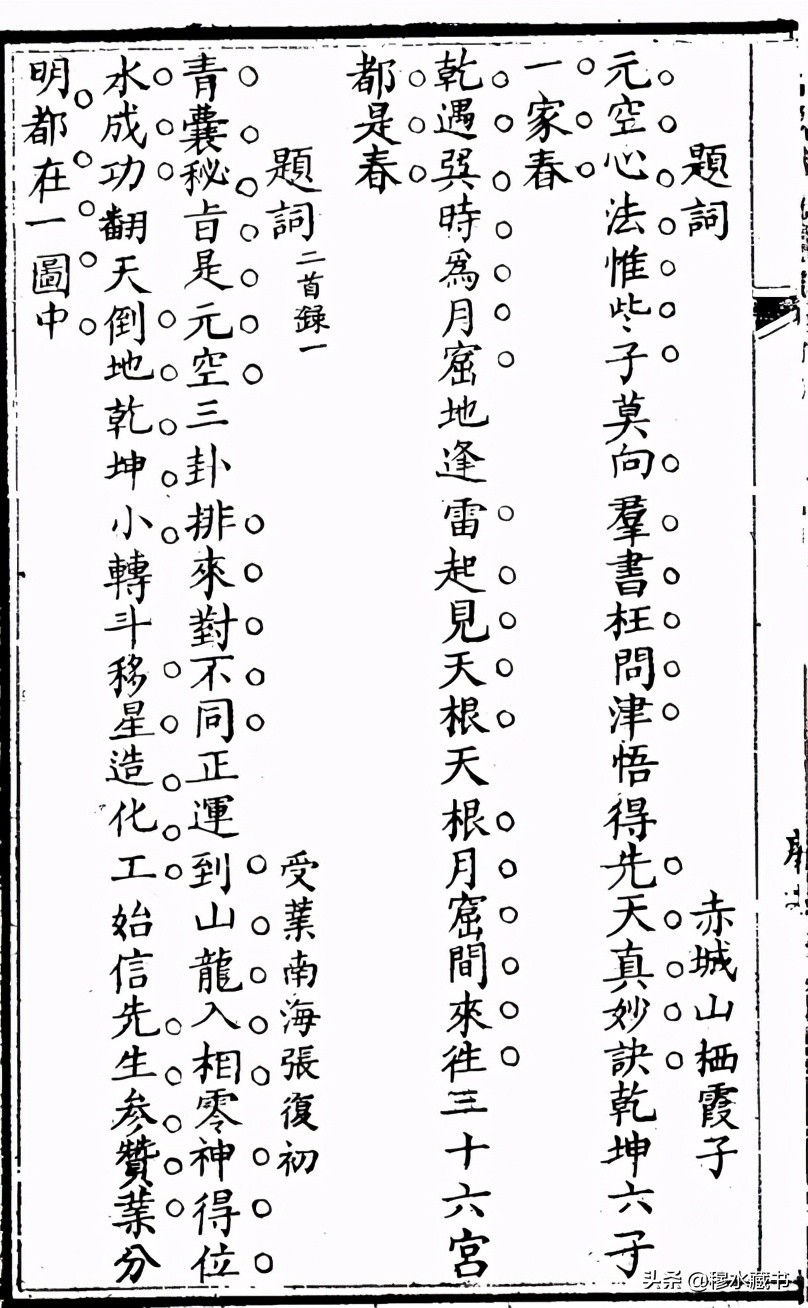 題詞
赤城山栖霞子
元空心法惟些子莫向羣書枉問津悟得先天真妙訣乾坤六子
一家春
乾遇巽時爲月窟地逢雷起見天根天根月窟間來徃三十六宮
都是春
題詞二首錄一
受業南海張復初
青囊秘旨是元空三卦排來對不同正運到山龍入相零神得位
水成功翻天倒地乾坤小轉斗移星造化工始信先生參贊業分
明都在一圖中
头条 @穆水藏书